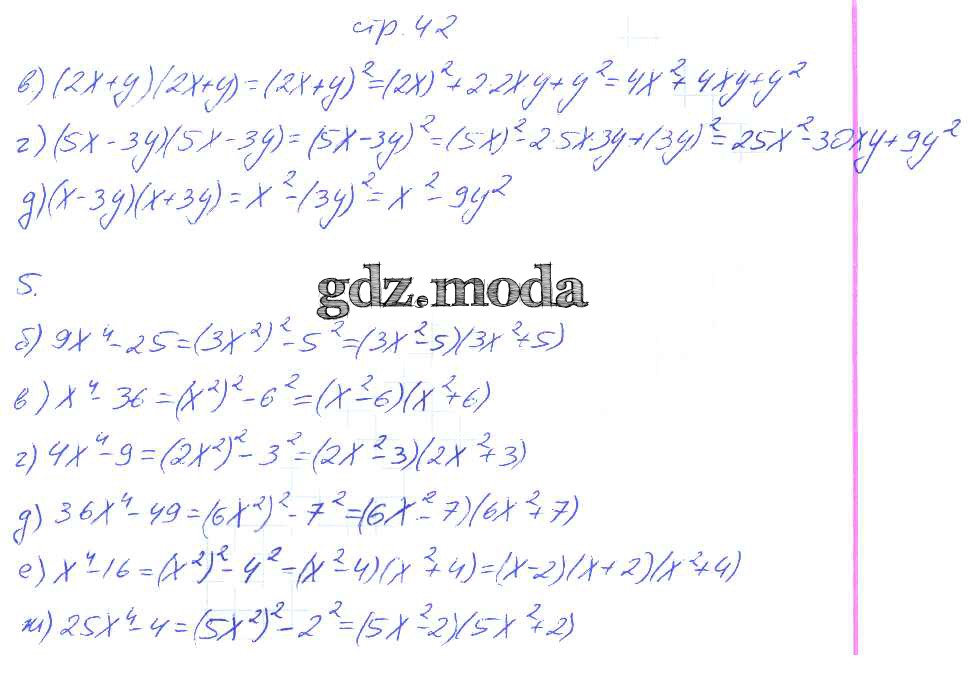 стр. 42
в) (2x+y)(2x+y)=(2x+y)²=(2x)²+2·2xy+y²=4x²+4xy+y²
г) (5x-3y)(5x-3y)=(5x-3y)²=(5x)²-2·5x·3y+(3y)²=25x²-30xy+9y²
д) (x-3y)(x+3y)=x²-(3y)²=x²-9y²
5.
gdz.moda
б) 9x⁴-25=(3x²)²-5²=(3x²-5)(3x²+5)
в) x⁴-36=(x²)²-6²=(x²-6)(x²+6)
г) 4x⁴-9=(2x²)²-3²=(2x²-3)(2x²+3)
д) 36x⁴-49=(6x²)²-7²=(6x²-7)(6x²+7)
е) x⁴-16=(x²)²-4²=(x²-4)(x²+4)=(x-2)(x+2)(x²+4)
ж) 25x⁴-4=(5x²)²-2²=(5x²-2)(5x²+2)